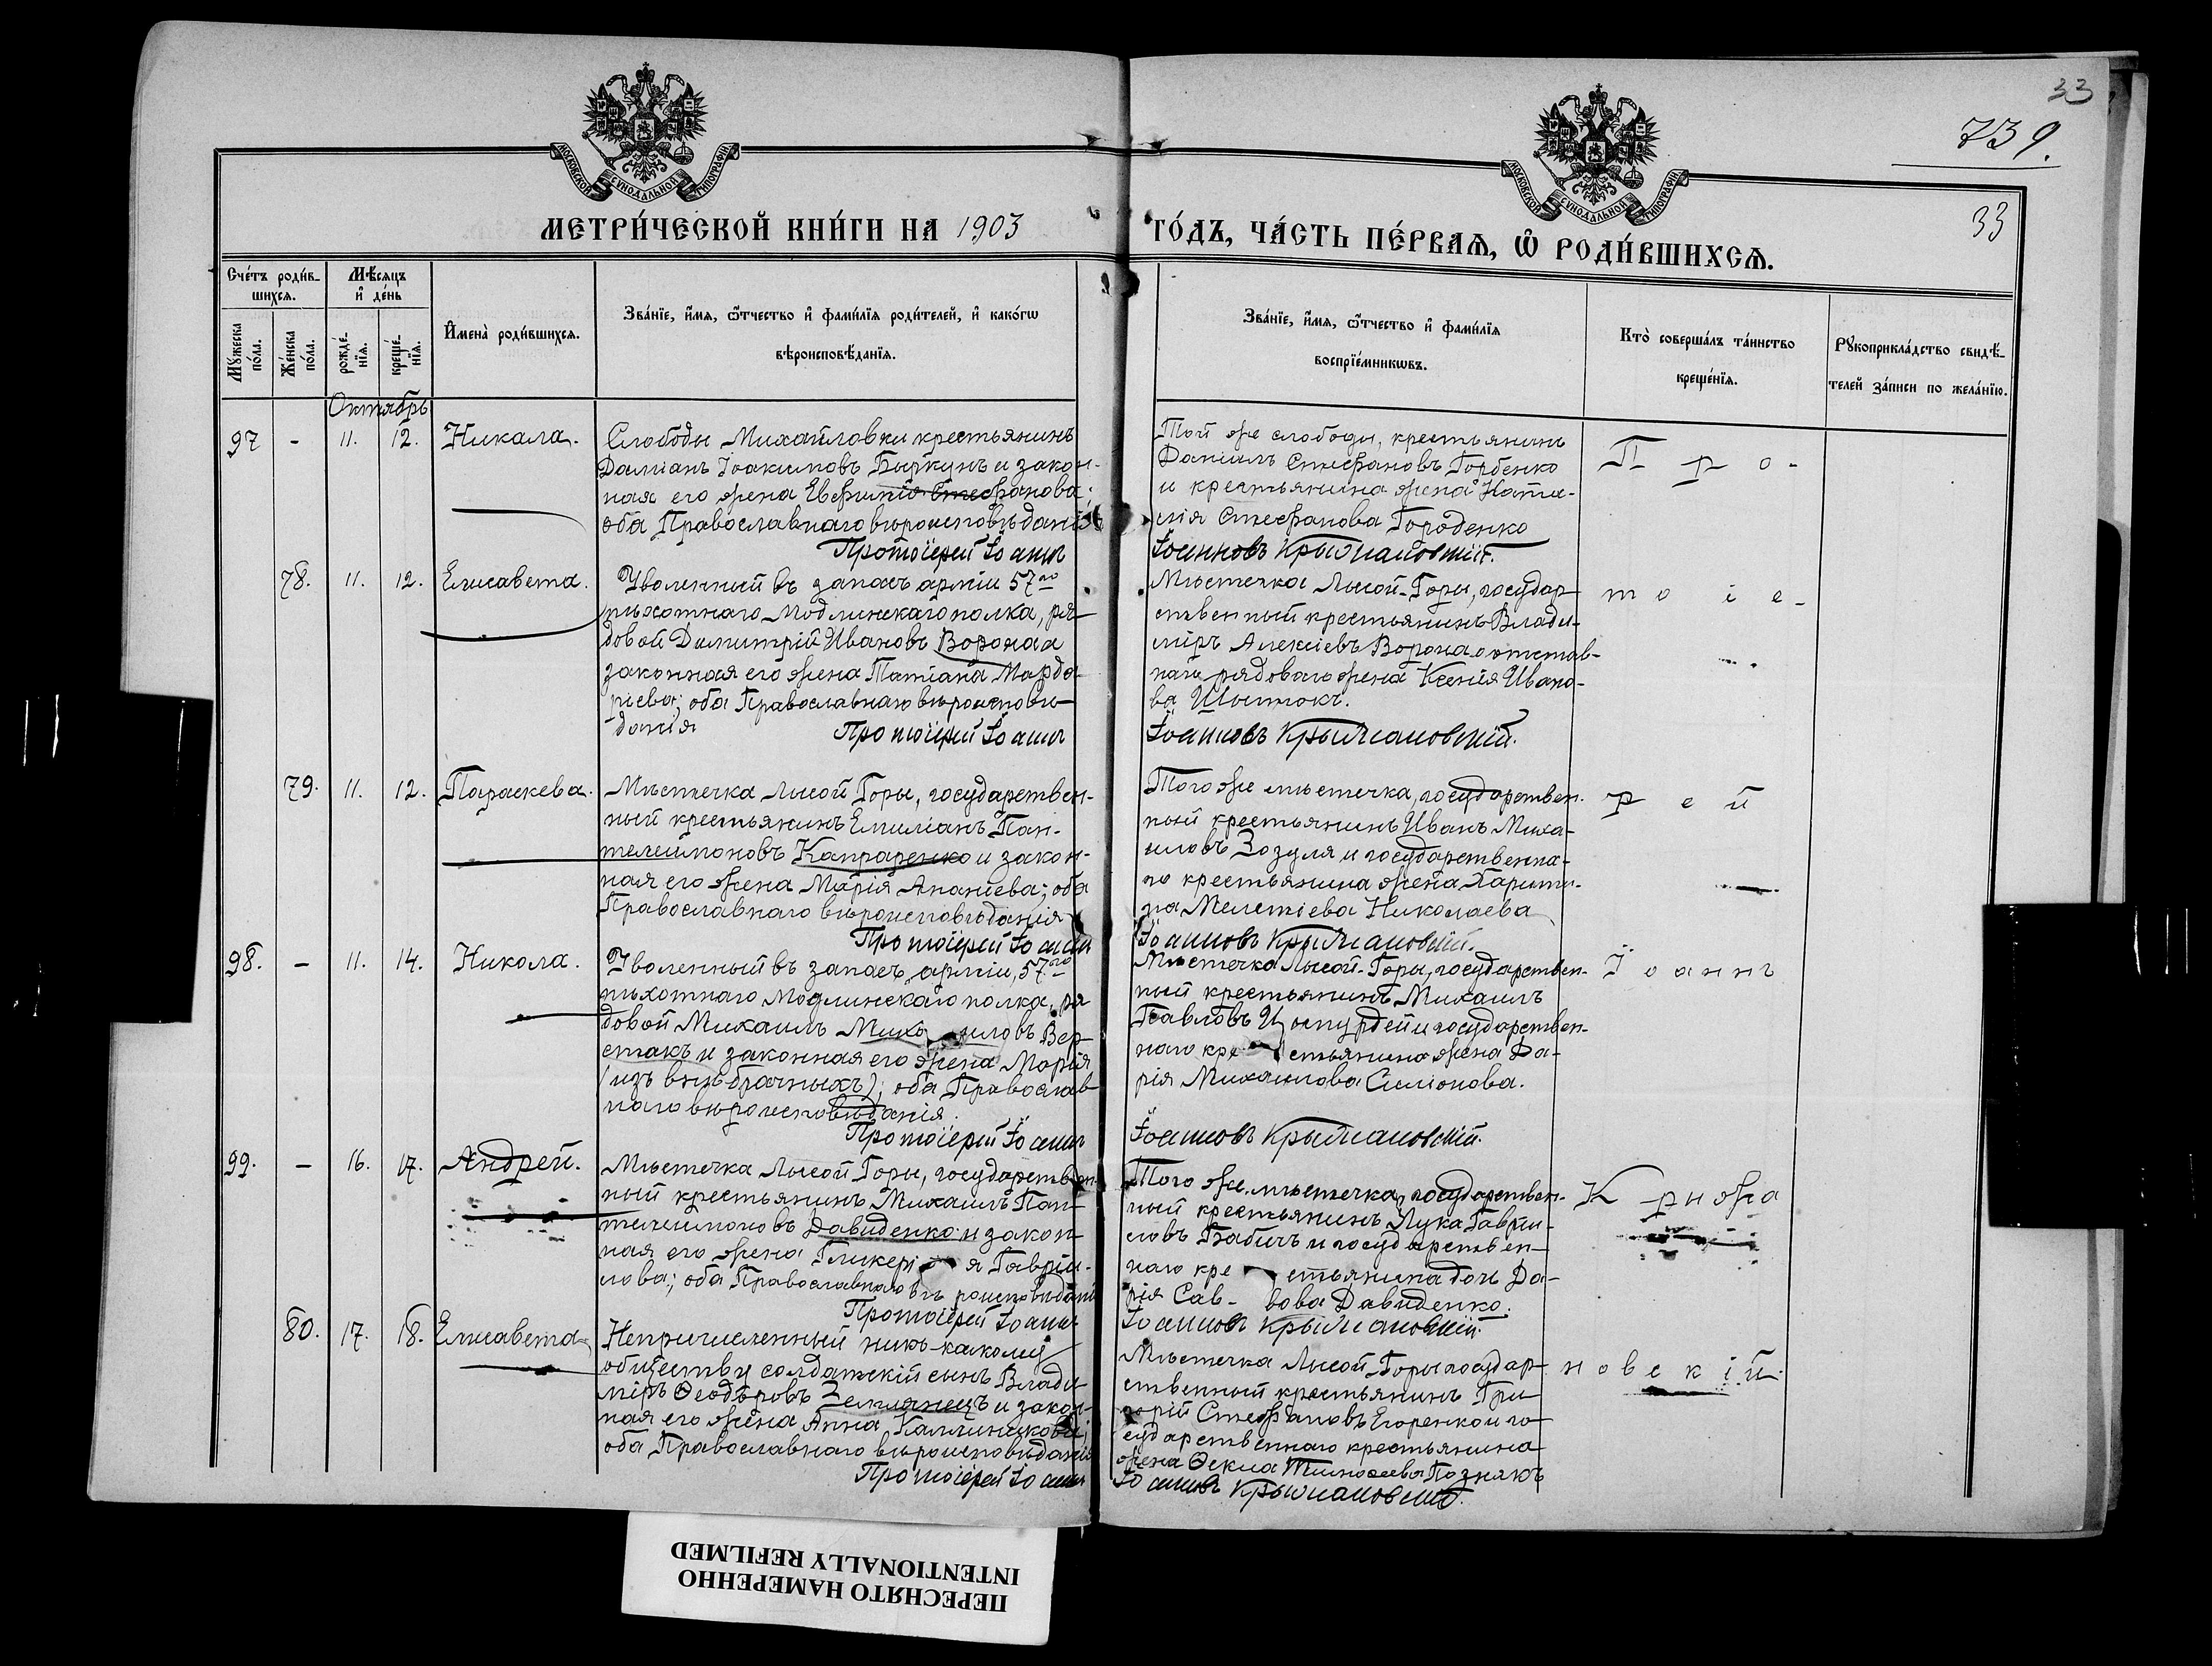 33
739.
33
МОСКОВСКОЙ СѴНОДАЛЬНОЙ ТИПОГРАФІИ
МОСКОВСКОЙ СѴНОДАЛЬНОЙ ТИПОГРАФІИ
МЕТРИ́ЧЕСКОЙ КНИ́ГИ НА 1903 ГО́ДЪ, ЧА́СТЬ ПЕ́РВАѦ, Ѡ҆ РОДИ́ВШИХСѦ.
Сче́тъ роди́вшихся.
Мѣ́сяцъ и҆ де́нь
Мꙋ́жеска по́ла.
Же́нска по́ла.
рожде́нїя.
креще́нїя.
И҆мена̀ роди́вшихся.
Зва́нїе, и҆́мя, ѻ҆́тчество и҆ фами́лїя роди́телей, и҆ како́гѡ вѣроисповѣ́данїя.
Зва́нїе, и҆́мя, ѻ҆́тчество и҆ фами́лїя воспрїе́мникѡвъ.
Кто̀ соверша́лъ та́инство креще́нїя.
Рꙋкоприкла́дство свидѣ́телей за́писи по жела́нїю.
Октябрь
97 - 11. 12. Никала.
Слободы Михайловки крестьянинъ
Даміанъ Іоакимовъ Быркунъ и закон-
ная его жена Евфимія Стефанова;
оба Православнаго вѣроисповѣданія
Протоіерей Іоаннъ
Той же слободы, крестьянинъ
Даніилъ Стефановъ Горбенко
и крестьянина жена Ната-
лія Стефанова Городенко
Іоанновъ Крыжановскій.
П р о-
78. 11. 12. Елисавета.
Уволенный въ запасъ арміи 57го
пѣхотнаго Модлинскаго полка, ря-
довой Димитрій Ивановъ Ворона и
законная его жена Татіана Марда-
ріева; оба Православнаго вѣроисповѣ-
данія
Протоіерей Іоаннъ
Мѣстечка Лысой-Горы, государ-
ственный крестьянинъ Влади-
міръ Алексіевъ Ворона и отстав-
наго рядоваго жена Ксенія Ивано-
ва
Іоанновъ Крыжановскій.
т о і е-
79. 11. 12. Параскева.
Мѣстечка Лысой Горы, государствен-
ный крестьянинъ Емиліанъ Пан-
телеимоновъ Капраренко и закон-
ная его жена Марія Ананіева; оба
Православнаго вѣроисповѣданія
Протоіерей Іоаннъ
Того же мѣстечка, государствен-
ный крестьянинъ Иванъ Миха-
иловъ Зозуля и государственна-
го крестьянина жена Харити-
на Мелетіева Николаева
Іоанновъ Крыжановскій.
р е й
98. - 11. 14. Никола.
Уволенный въ запасъ арміи, 57го
пѣхотнаго Модлинскаго полка, ря-
довой Михаилъ Михаиловъ Вер-
стакъ и законная его жена Марія
(изъ внѣбрачныхъ); оба Православ-
наго вѣроисповѣданія.
Протоіерей Іоаннъ
Мѣстечка Лысой-Горы, государствен-
ный крестьянинъ Михаилъ
Павловъ и государствен-
наго крестьянина жена Да-
рія Михаилова Силіонова.
Іоанновъ Крыжановскій.
І о а н н ъ
99. - 16. 17. Андрей.
Мѣстечка Лысой Горы, государствен-
ный крестьянинъ Михаилъ Пан-
телеимоновъ Давиденко и закон-
ная его жена Гликерія Гавріи-
лова; оба Православнаго вѣроисповѣданія
Протоіерей Іоаннъ
Того же мѣстечка, государствен-
ный крестьянинъ Лука Гаврии-
ловъ Бабичъ и государствен-
наго крестьянина дочь Да-
рія Сав-вова Давиденко.
Іоанновъ Крыжановскій.
К р ы ж а
80. 17. 18. Елисавета
Непричисленный ник-какому
обществу солдатскій сынъ Влади-
міръ Ѳеодоровъ Землянецъ и закон-
ная его жена Анна Каллиникова;
оба Православнаго вѣроисповѣданія
Протоіерей Іоаннъ
Мѣстечка Лысой-Горы государ-
ственный крестьянинъ Гри-
горій Стефановъ Егоренко и го-
сударственнаго крестьянина
жена Ѳекла Тимофеева Познякъ
Іоанновъ Крыжановскій.
н о в с к і й.
ПЕРЕСНЯТО НАМЕРЕННО
INTENTIONALLY REFILMED